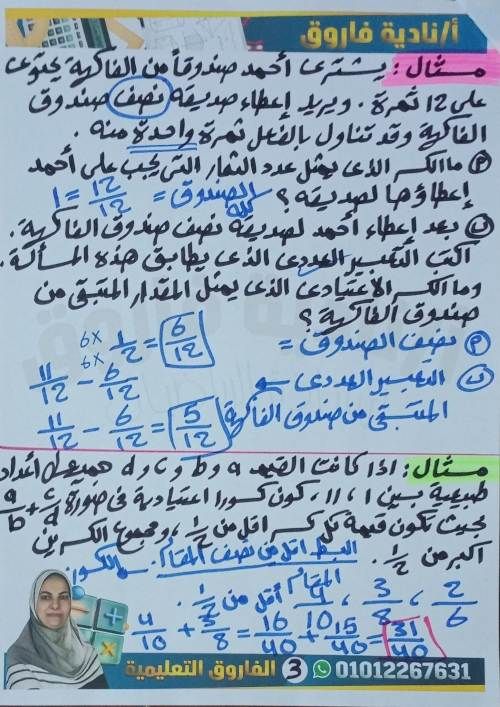 أ/نادية فاروق
مثال : يشترى أحمد صندوقاً من الفاكهة يحتوى
على 12 ثمرة . ويريد إعطاء صديقه نصف صندوق
الفاكهة وقد تناول بالفعل ثمرة واحدة منه .
(P) ما الكسر الذى يمثل عدد الثمار التى يجب على أحمد
إعطاؤها لصديقه ؟ الصندوق كله = 12/12 = 1
(ب) بعد إعطاء أحمد لصديقه نصف صندوق الفاكهة .
اكتب التعبير العددى الذى يطابق هذه المسألة .
وما الكسر الاعتيادى الذى يمثل المقدار المتبقى من
صندوق الفاكهة ؟
(P) نصف الصندوق = 1/2 6x 6x = 6/12
(ب) التعبير العددى 11/12 - 6/12
المتبقى من صندوق الفاكهة 11/12 - 6/12 = 5/12
مثال : اذا كانت القيم a و b و c و d هم أعداد
طبيعية بين 1 ، 11 ، كون كسورا اعتيادية فى صورة a/b + c/d
بحيث تكون قيمة كل كسر اقل من 1/2 ، ومجموع الكسرين
اكبر من 1/2 . البسط اقل من نصف المقام . الكسور
المقام أقل من 1/2 . 4/10 ، 3/8 ، 2/6
4/10 + 3/8 = 16/40 + 15/40 = 31/40
الفاروق التعليمية 3 01012267631